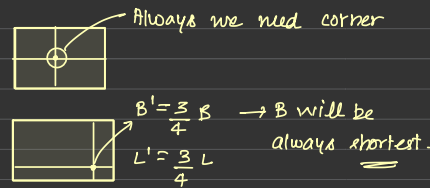 Always we need corner
B' = 3/4 B → B will be
always shortest.
L' = 3/4 L